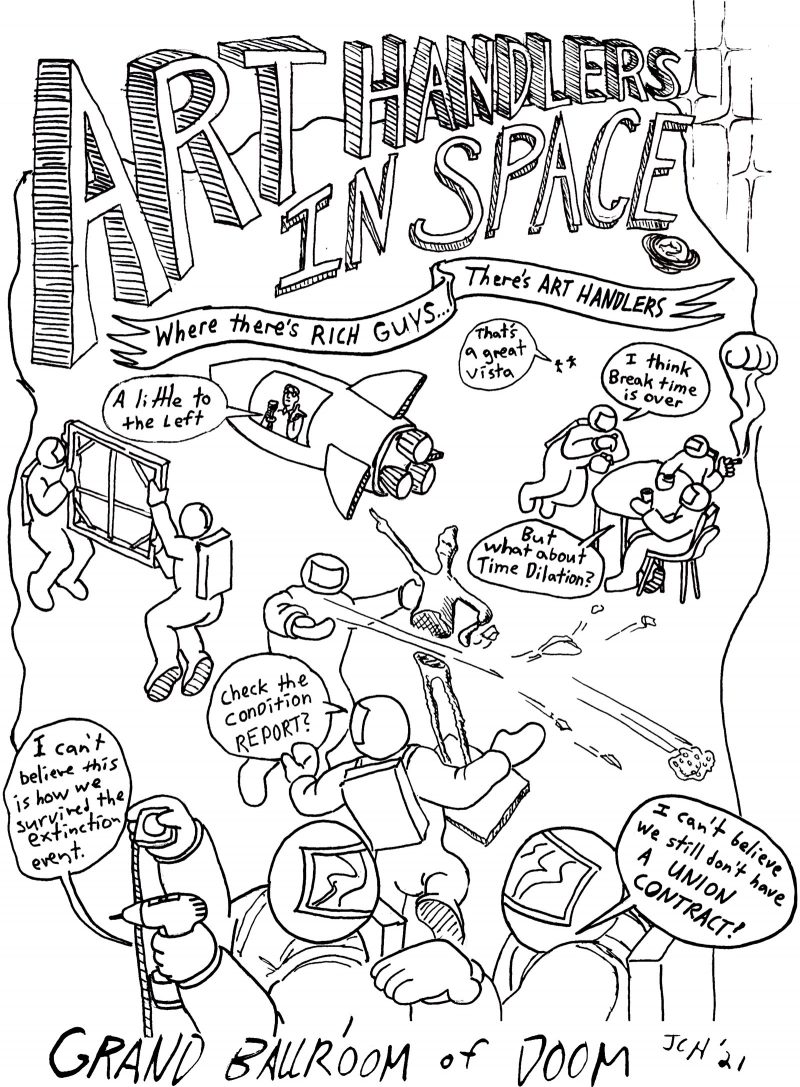 ART HANDLERS
IN SPACE
Where there's RICH GUYS... There's ART HANDLERS
That's
a great
vista
I think
Break time
is over
A little to
the Left
But
what about
Time Dilation?
Check the
CONDITION
REPORT?
I can't
believe this
is how we
survived the
extinction
event.
I can't believe
we still don't have
A UNION
CONTRACT!
GRAND BALLROOM of DOOM JCH '21